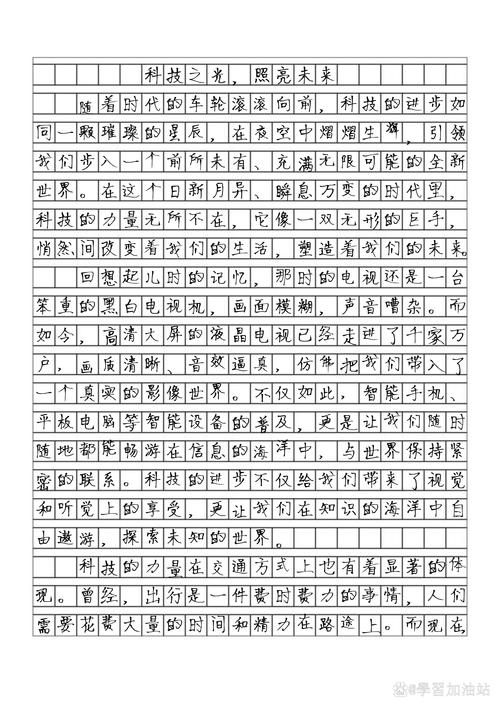 科技之光，照亮未来
随着时代的车轮滚滚向前，科技的进步如
同一颗璀璨的星辰，在夜空中熠熠生辉，引领
我们步入一个前所未有、充满无限可能的全新
世界。在这个日新月异、瞬息万变的时代里，
科技的力量无所不在，它像一双无形的巨手，
悄然间改变着我们的生活，塑造着我们的未来。
回想起儿时的记忆，那时的电视还是一台
笨重的黑白电视机，画面模糊，声音嘈杂。而
如今，高清大屏的液晶电视已经走进了千家万
户，画质清晰、音效逼真，仿佛把我们带入了
一个真实的影像世界。不仅如此，智能手机、
平板电脑等智能设备的普及，更是让我们随时
随地都能畅游在信息的海洋中，与世界保持紧
密的联系。科技的进步不仅给我们带来了视觉
和听觉上的享受，更让我们在知识的海洋中自
由遨游，探索未知的世界。
科技的力量在交通方式上也有着显著的体
现。曾经，出行是一件费时费力的事情，人们
需要花费大量的时间和精力在路途上。而现在，
@學習加油站